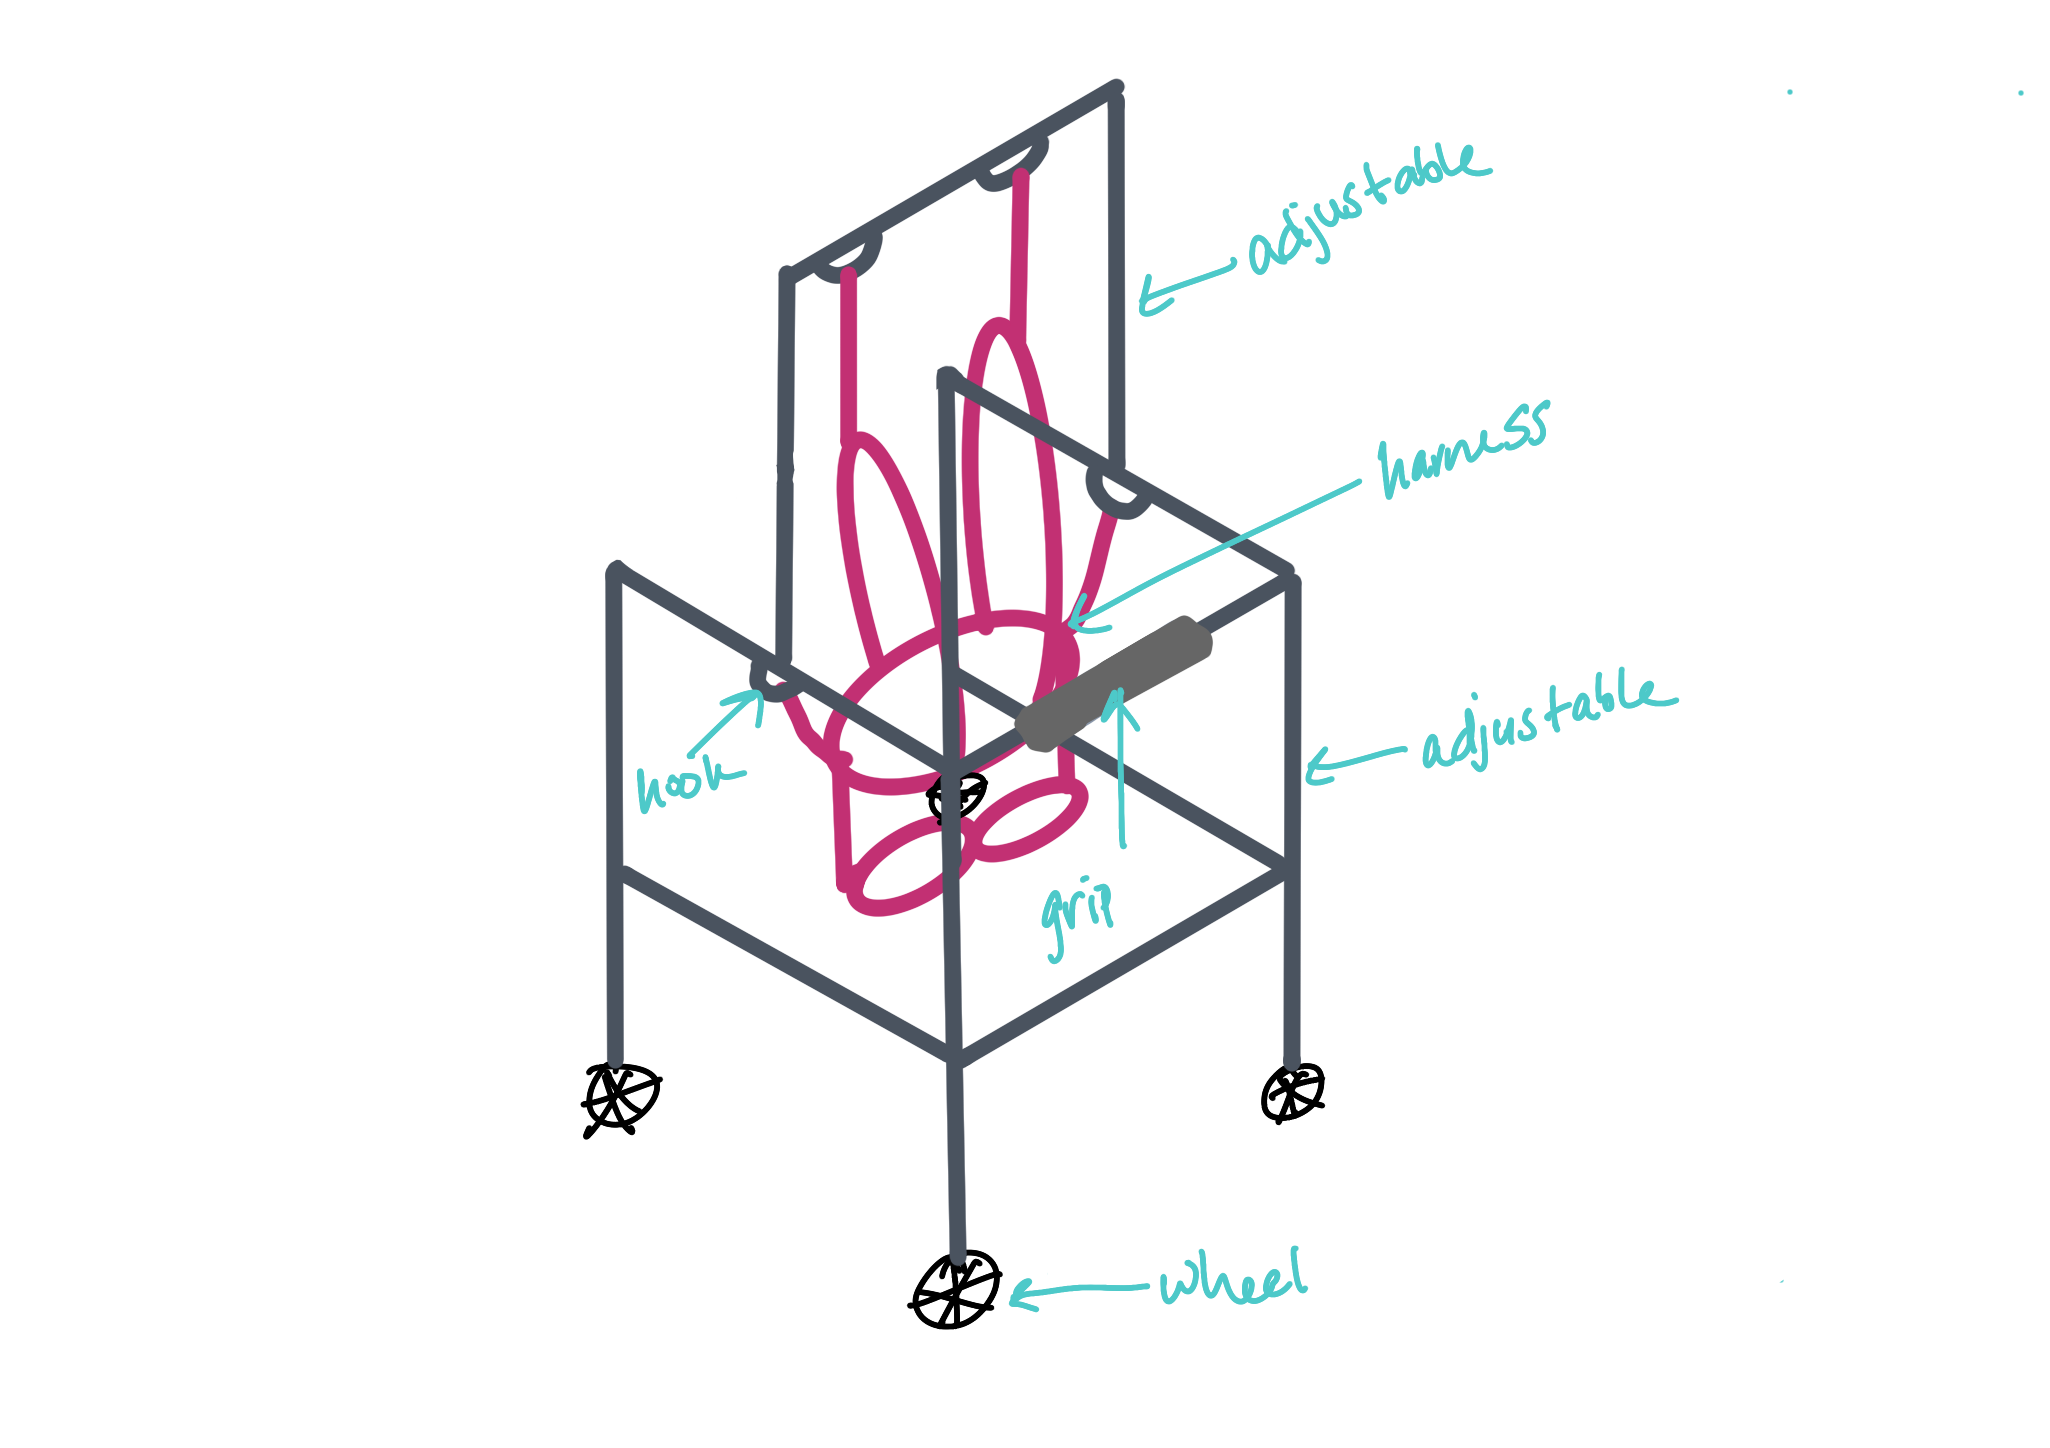 adjustable
harness
adjustable
hook
grip
wheel